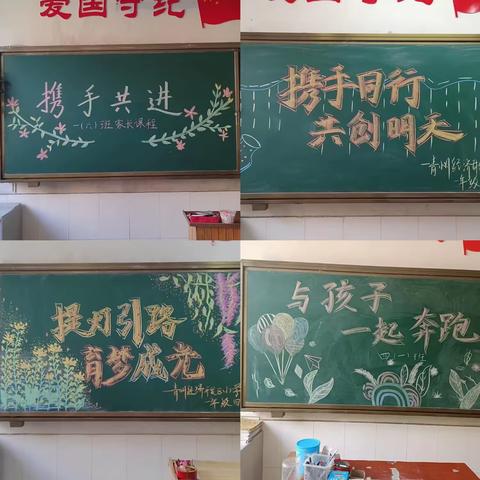 爱国守纪
携手共进
一(六)班家长课程
携手同行
共创明天
青州经济开
一年级
提灯引路
育梦成光
青州经济开发区小学
一年级
与孩子
一起奔跑
四(一)班